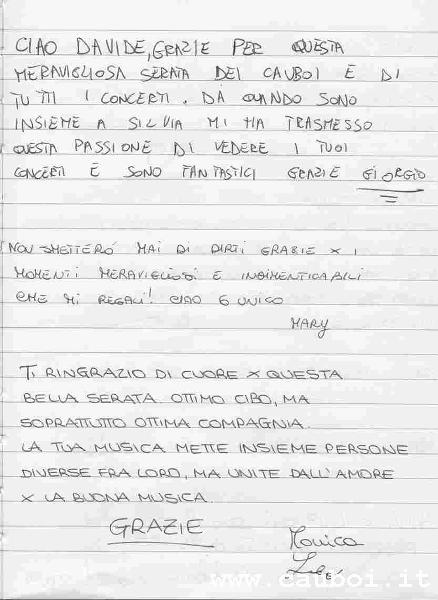 CIAO DAVIDE, GRAZIE PER QUESTA
MERAVIGLIOSA SERATA DEI CAUBOI E DI
TUTTI I CONCERTI. DA QUANDO SONO
INSIEME A SILVIA MI HA TRASMESSO
QUESTA PASSIONE DI VEDERE I TUOI
CONCERTI E SONO FANTASTICI GRAZIE GIORGIO
NON SMETTERÓ MAI DI DIRTI GRAZIE X I
MOMENTI MERAVIGLIOSI E INDIMENTICABILI
CHE MI REGALI! CIAO 6 UNICO
MARY
TI RINGRAZIO DI CUORE X QUESTA
BELLA SERATA. OTTIMO CIBO, MA
SOPRATTUTTO OTTIMA COMPAGNIA.
LA TUA MUSICA METTE INSIEME PERSONE
DIVERSE FRA LORO, MA UNITE DALL'AMORE
X LA BUONA MUSICA.
GRAZIE
Monica
www.cauboi.it